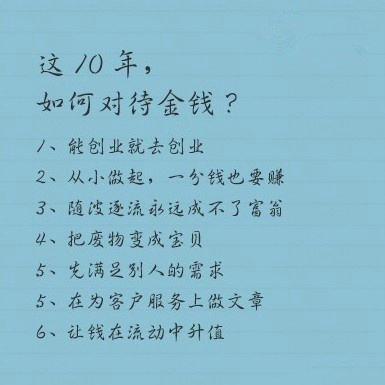 这 10 年，
如何对待金钱？
1、能创业就去创业
2、从小做起，一分钱也要赚
3、随波逐流永远成不了富翁
4、把废物变成宝贝
5、先满足别人的需求
5、在为客户服务上做文章
6、让钱在流动中升值